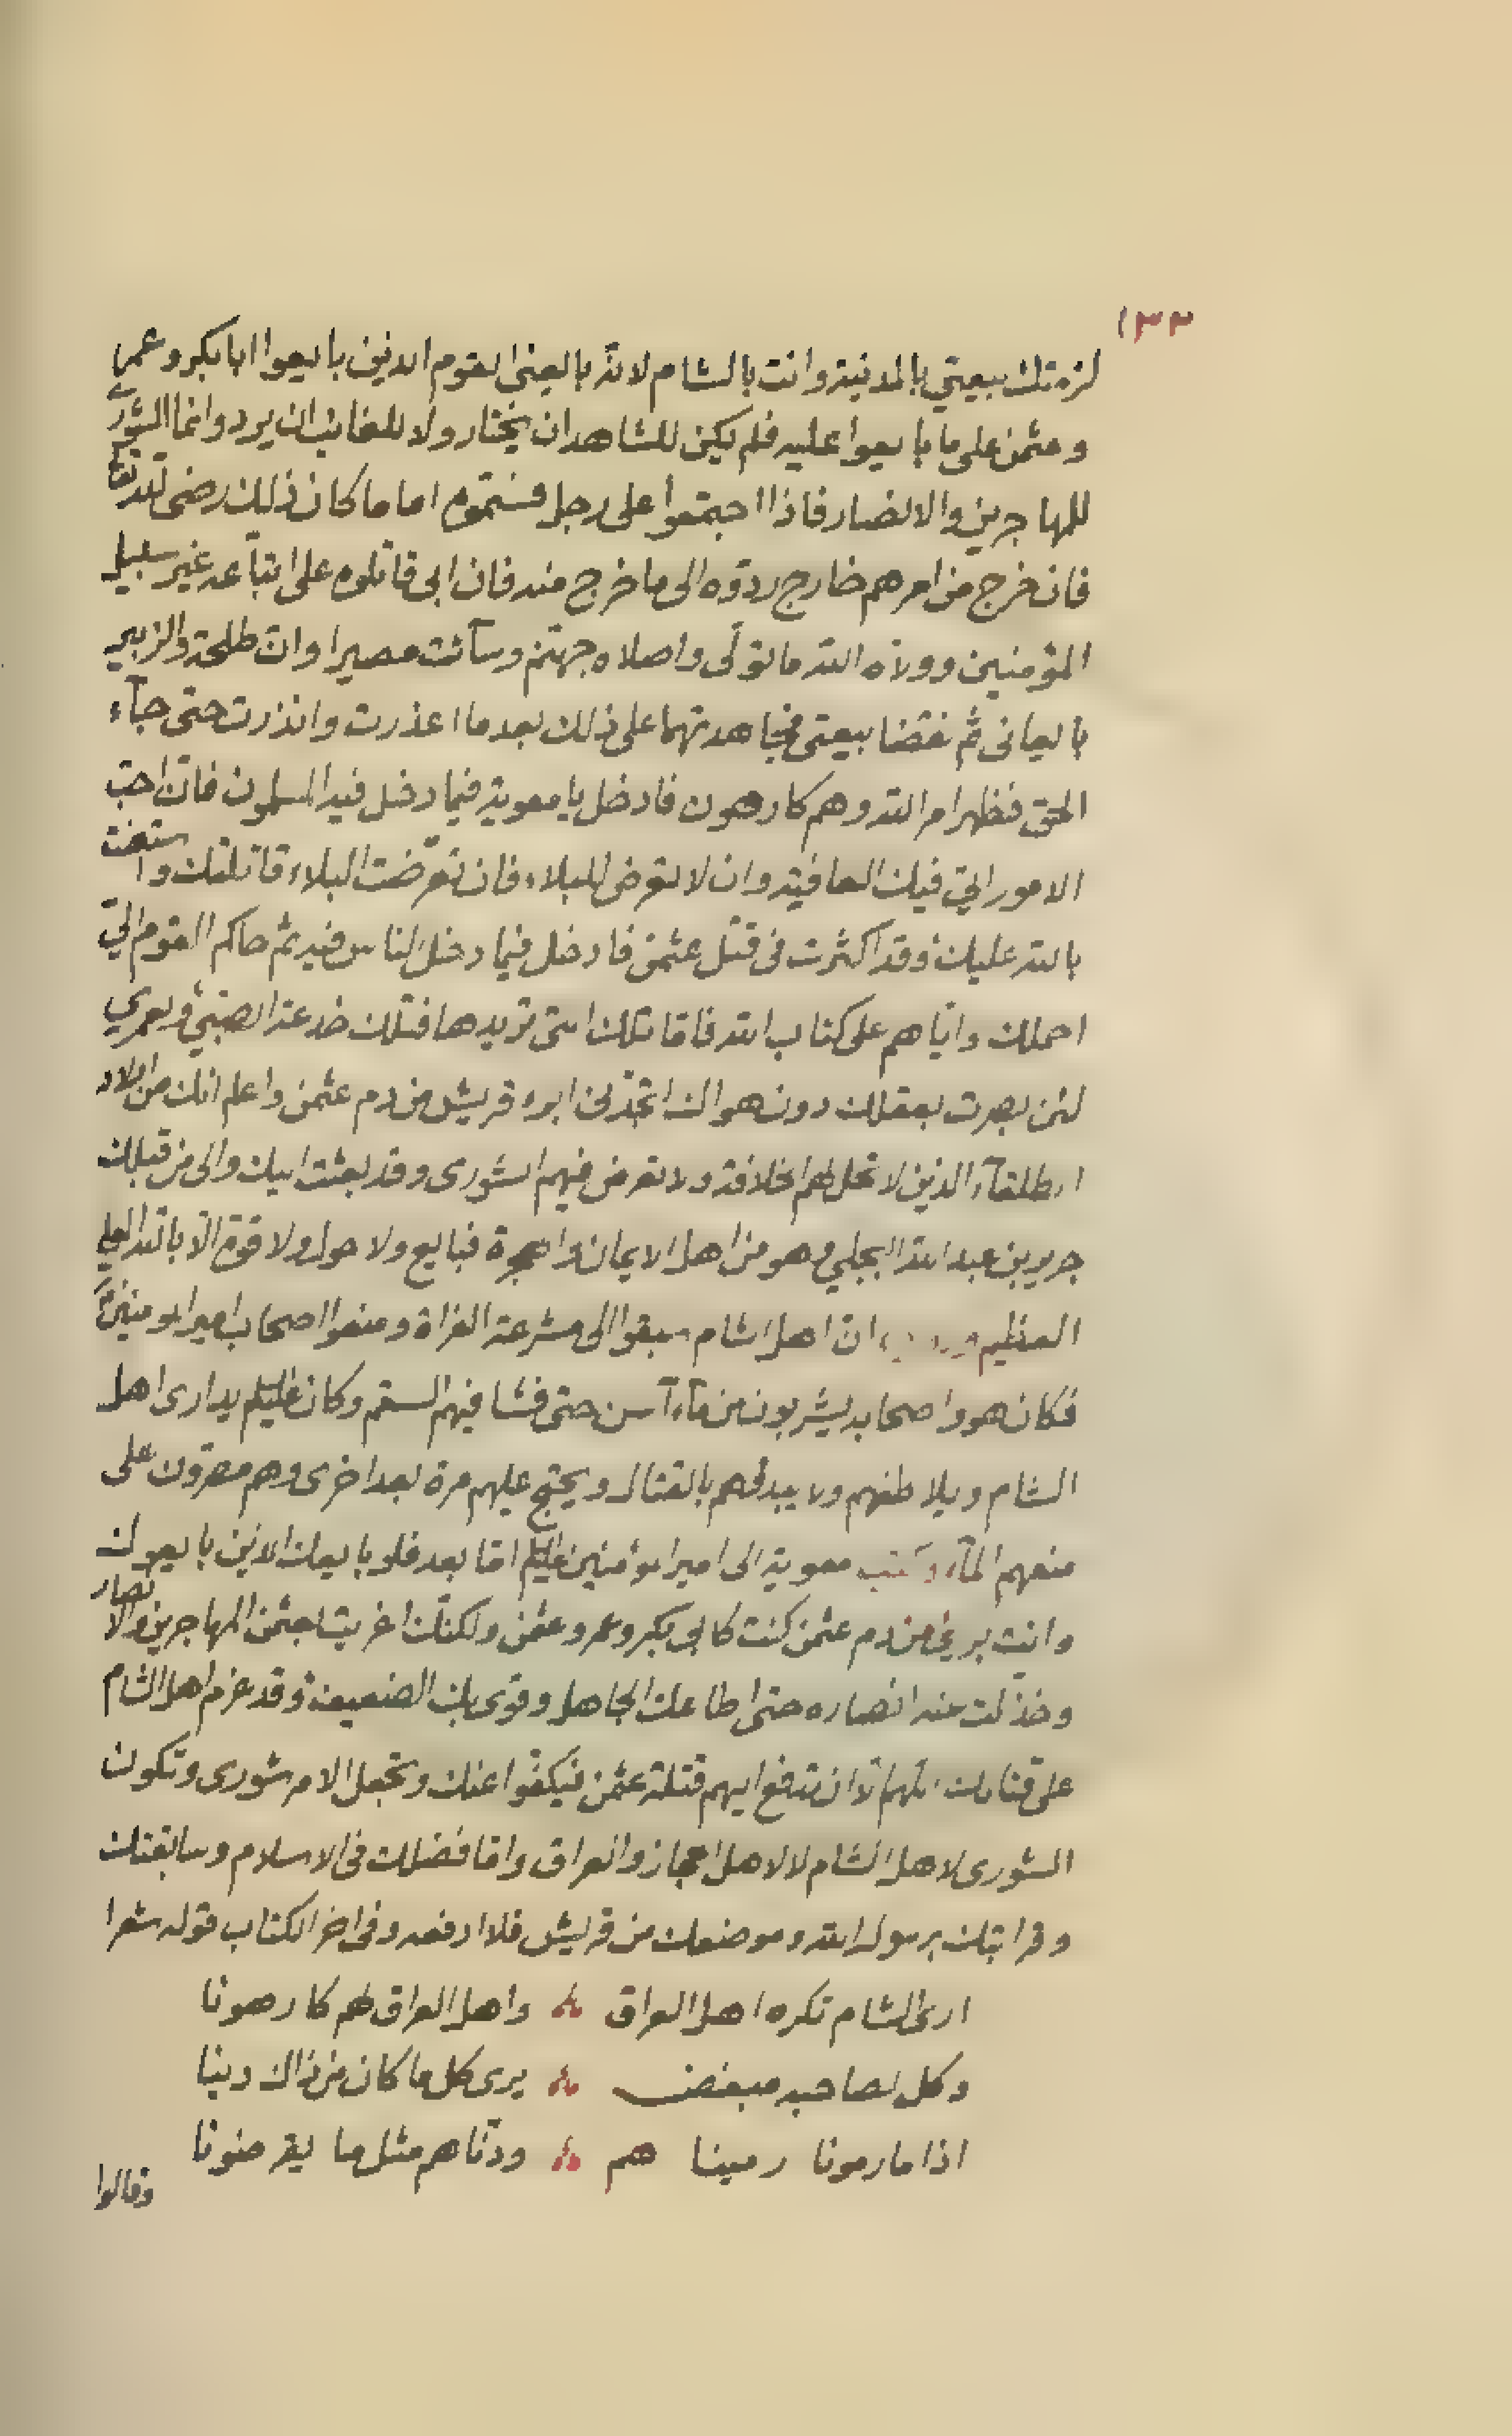 ١٣٢
لزمتك بيعتي بالمدينة وانت بالشام لانه بايعني القوم الذين بايعوا ابا بكر وعمر
وعثمن على ما بايعوا عليه فلم يكن للشاهد ان يختار ولا للغائب ان يرد وانما الشورى
للمهاجرين والانصار فاذا اجتمعوا على رجل فسموه اماما كان ذلك رضى لله تعالى
فان خرج من امرهم خارج ردوه الى ما خرج منه فان ابى قاتلوه على اتباعه غير سبيل
المؤمنين وولاه الله ما تولى واصلاه جهنم وسآئت مصيرا وان طلحة والزبير
بايعانى ثم نقضا بيعتى فجاهدتهما على ذلك بعد ما اعذرت وانذرت حتى جآء
الحق فظهر امر الله وهم كارهون فادخل يا معوية فيما دخل فيه المسلمون فان احب
الامور الي فيك العافية وان لا تعرض للبلاء فان تعرضت البلاء قاتلتك واستعنت
بالله عليك وقد اكثرت فى قتل عثمن فادخل فيما دخل الناس فيه ثم حاكم القوم الي
احملك واياهم على كتاب الله فاما تلك التى تريدها فتلك خدعة الصبي ولعمري
لئن بصرت بعقلك دون هواك لتجدنى ابرء قريش من دم عثمن واعلم انك من اولاد
الطلقآء الذين لا تحل لهم الخلافة ولا تعرض فيهم الشورى وقد بعثت اليك والى من قبلك
جرير بن عبد الله البجلي وهو من اهل الايمان والهجرة فبايع ولا حول ولا قوة الا بالله العلي
العظيم ان اهل الشام سبقوا الى مشرعة الفراة ومنعوا اصحاب امير المومنين
فكان هو واصحابه يشربون من مآء آسن حتى فشا فيهم السقم وكان عليلم يدارى اهل
الشام ويلاطفهم ولا يبدئهم بالقتال ويحتج عليهم مرة بعد اخرى وهم مصرون على
منعهم المآء وكتب معوية الى امير المؤمنين عليلم اما بعد فلو بايعك الذين بايعوك
وانت برئ من دم عثمن كنت كابى بكر وعمر وعثمن ولكنك اغريت بعثمن المهاجرين والانصار
وخذلت عنه انصاره حتى اطاعك الجاهل وقوى بك الضعيف وقد عزم اهل الشام
على قتالك اللهم الا ان تدفع اليهم قتلة عثمن فيكفوا عنك وتجعل الامر شورى وتكون
الشورى لاهل الشام لا لاهل الحجاز والعراق واما فضلك فى الاسلام وسابقتك
وقرابتك برسول الله وموضعك من قريش فلا ادفعه وفى اخر الكتاب قوله شعرا
ارى الشام تكره اهل العراق واهل العراق لهم كارهونا
وكل لصاحبه مبغض يرى كل ما كان من ذاك دينا
اذا ما رمونا رمينا هم ودناهم مثل ما يقرضونا
وقالوا